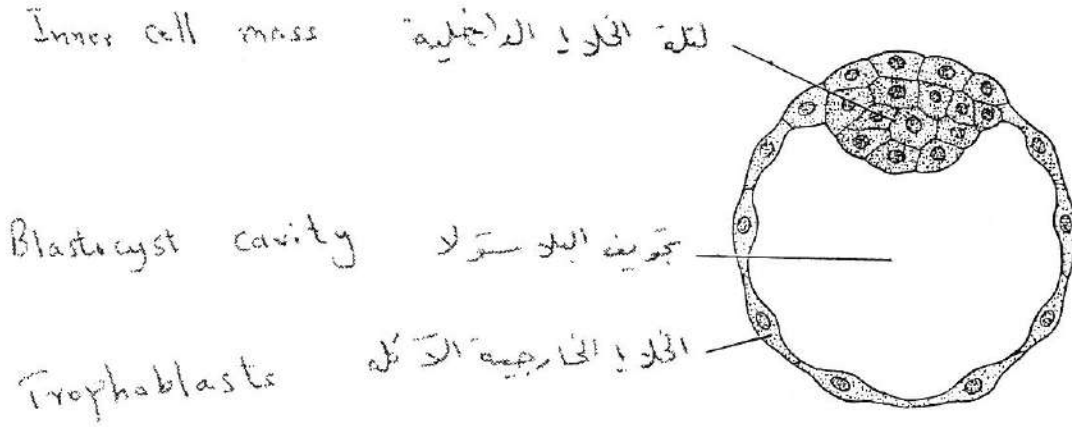 Inner cell mass كتلة الخلايا الداخلية
Blastocyst cavity تجويف البلاستولا
Trophoblasts الخلايا الخارجية الآكلة